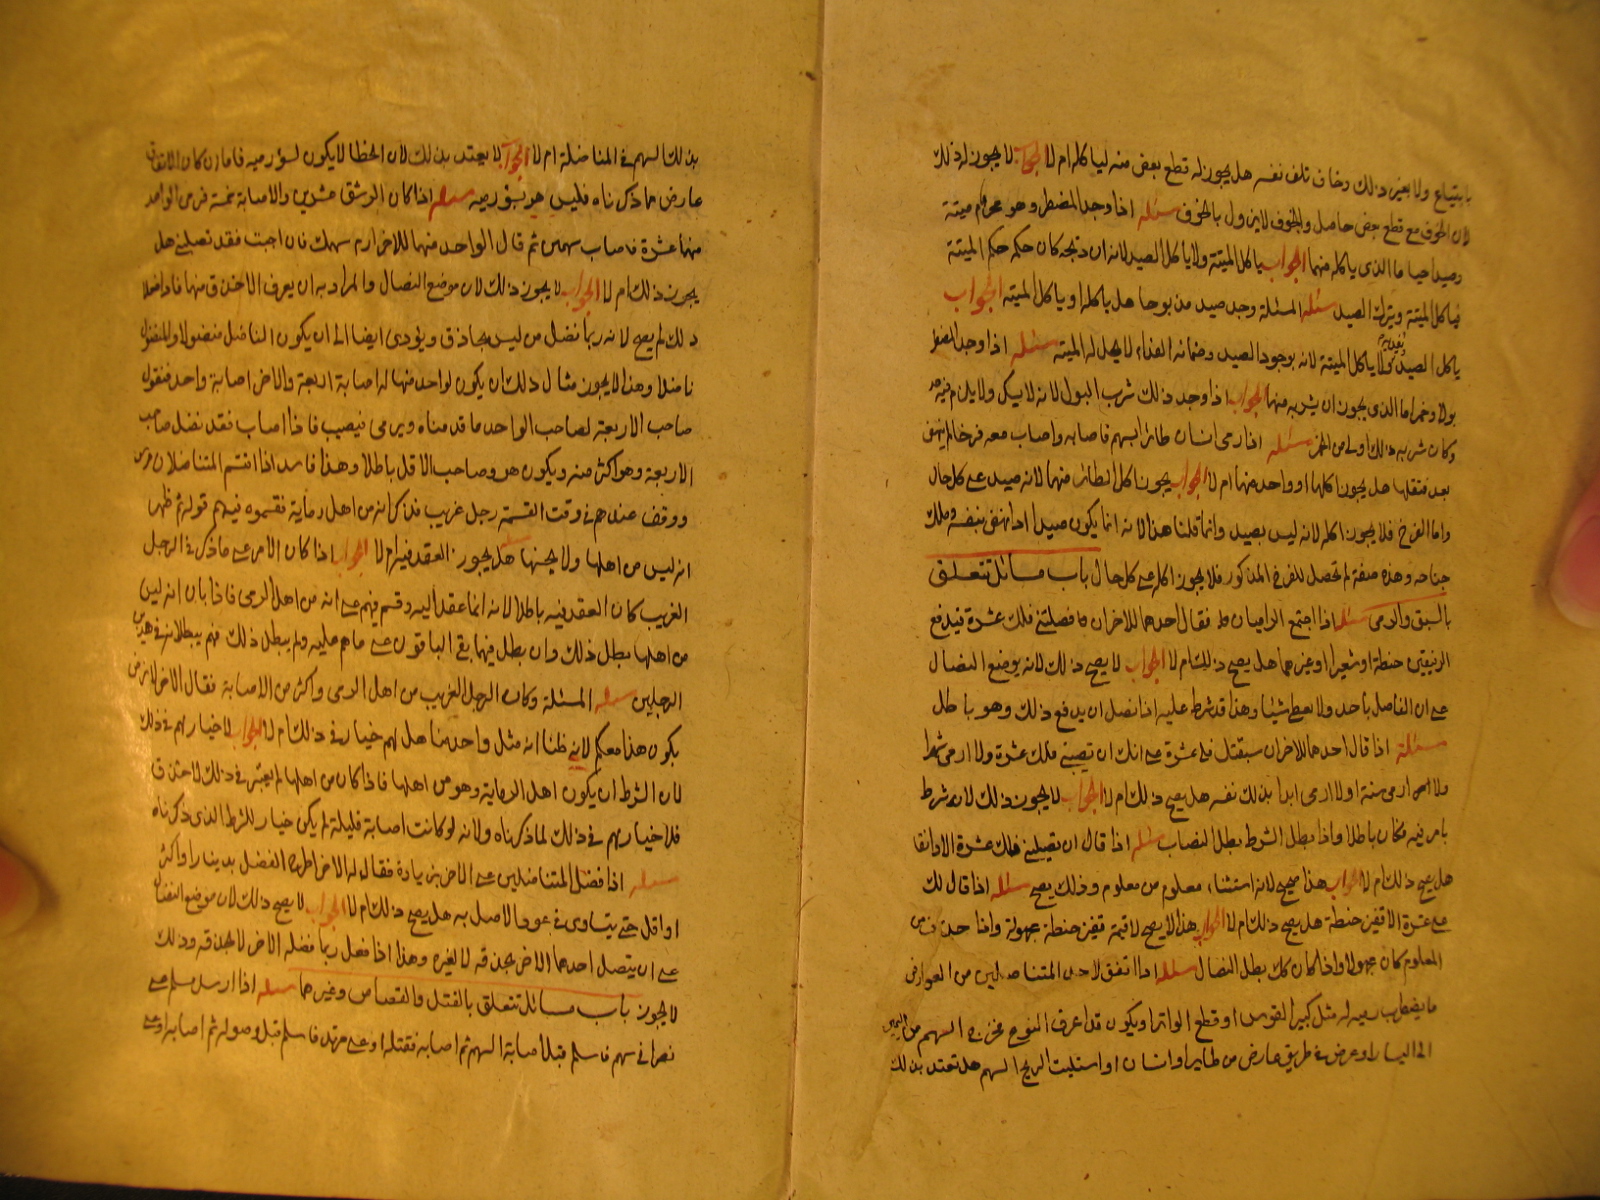 بابتياع ولا بغير ذلك وخاف تلف نفسه هل يجوز له قطع بعض منه لياكله ام لا الجواب لا يجوز له ذلك
لان الخوف مع قطع بعض حاصل والخوف لا يزول بالخوف مسئلة اذا وجد المضطر وهو محرم ميتة
وصيدا حيا ما الذى ياكله منهما الجواب ياكل الميتة ولا ياكل الصيد لانه ان ذبحه كان حكمه حكم الميتة
فياكل الميتة ويترك الصيد مسئلة المسئلة وجد صيد مذبوحا هل ياكله او ياكل الميته الجواب
ياكل الصيد ولا ياكل الميتة لانه بوجود الصيد وضمانه الفداء لا يحل له الميته مسئلة اذا وجد المضطر
بولا وخمرا ما الذى يجوز ان يشربه منهما الجواب اذا وجد ذلك شرب البول لانه لا يسكر ولا يلزم فيه حد
وكان شربه ذلك اولى من الخمر مسئلة اذا رمى انسان طائرا بسهم فاصابه واصاب معه فرخا لم ينهض
بعد فقتلهما هل يجوز اكلهما او واحد منهما ام لا الجواب يجوز اكل الطائر منهما لانه صيد على كل حال
واما الفرخ فلا يجوز اكله لانه ليس بصيد وانما قلنا هذا لانه انما يكون صيدا اذا نهض بنفسه وملك
جناحه وهذه صفة لم تحصل للفرخ المذكور فلا يجوز اكله على كل حال باب مسائل تتعلق
بالسبق والرمى مسئلة اذا اجتمع الراميان فقال احدهما للاخر ان فضلتنى فلك عشرة فيدفع
حنطة او شعيرا او غيرهما هل يصح ذلك ام لا الجواب لا يصح ذلك لانه موضع النضال
على ان الفاضل ياخذ ولا يعطى شيئا وهذا قد شرط عليه اذا نضل ان يدفع ذلك وهو باطل
مسئلة اذا قال احدهما للاخر ان سبقتنى فلك عشرة على انك ان تصبنى فلك عشرة ولا ارمى شهرا
ولا ارمى سنة او لا ارمى ابدا بذلك نفسه هل يصح ذلك ام لا الجواب لا يجوز ذلك لانه شرط
فكان باطلا واذا بطل الشرط بطل النضال مسئلة اذا قال ان نضلتنى فلك عشرة الا دانقا
هل يصح ذلك ام لا الجواب هذا صحيح لانه استثناء معلوم من معلوم وذلك يصح مسئلة اذا قال لك
على عشرة الا قفيز حنطة هل يصح ذلك ام لا الجواب هذا لا يصح لان قيمة قفيز حنطة مجهولة واذا حذفت من
المعلوم كان مجهولا واذا كان كك بطل النضال مسئلة اذا اتفق لاحد المتناضلين من العوارض
ما يضطرب رميه له مثل كسر القوس او قطع الوتر او يكون قد اغرق النزع فخرج السهم من اليمين
الى اليسار او عرض فى طريقه عارض من طاير او انسان او استلبت الريح السهم هل تعتد بذلك
بذلك السهم فى المناضلة ام لا الجواب لا يعتد بذلك لان الخطا لا يكون لسؤ رميه فاما ان كان الاتفاق
عارض مما ذكرناه فليس هو بسؤ رميه مسئلة اذا كان الرشق عشرين والاصابة خمسة فرمى الواحد
منهما عشرة فاصاب سهمين ثم قال الواحد منهما للاخر ارم سهمك فان اصبت فقد نضلتنى هل
يجوز ذلك ام لا الجواب لا يجوز ذلك لان موضع النضال والمراد به ان يعرف الاحذق منهما فاذا فعلا
ذلك لم يصح لانه ربما نضل من ليس بحاذق ويؤدى ايضا الى ان يكون الناضل منضولا والمنضول
ناضلا وهذا لا يجوز مثال ذلك ان يكون لواحد منهما اصابة اربعة والاخر اصابة واحد فيقول
صاحب الاربعة لصاحب الواحد ما قدمناه ويرمى فيصيب فاذا اصاب فقد نضل صاحب
الاربعة وهو اكثر منه ويكون هو وصاحب الاقل باطلا وهذا فاسد اذا اقتسم المتناضلان
ووقف عندهم فى وقت القسمة رجل غريب فذكر انه من اهل رماية فقسموه فيهم قوله ثم ظهر
انه ليس من اهلها ولا يحسنها هل يجوز العقد فيه ام لا الجواب اذا كان الامر على ما ذكر فى الرجل
الغريب كان العقد فيه باطلا لانه انما عقد اليه وقسم فيهم على انه من اهل الرمى فاذا بان انه ليس
من اهلها بطل ذلك وان بطل فيهما بقى الباقون على ما هم عليه ولم يبطل ذلك فيهم ببطلانه فى هذين
الرجلين مسئلة المسئلة وكان الرجل الغريب من اهل الرمى واكثر من الاصابة فقال الاخر لا نرضى
بكون هذا معكم لاننى ظننا انه مثل واحد منا هل لهم خيار فى ذلك ام لا الجواب لا خيار لهم فى ذلك
لان الشرط ان يكون اهل الرماية وهو من اهلها فاذا كان من اهلها لم يعتبر فى ذلك الاحذق
فلا خيار لهم فى ذلك لما ذكرناه ولانه لو كانت اصابة قليلة لم يكن خيار للشرط الذى ذكرناه
مسئلة اذا فضل المتناضلين على الاخر بزيادة فقال له الاخر اطرح الفضل بدينار او اكثر
او اقل حتى يتساوى فى عود الاصل به هل يصح ذلك ام لا الجواب لا يصح ذلك لان موضع النضال
على ان يتصل احدهما الاخر بحذقه لا لغيره وهذا اذا فعل ربما فضله الاخر لا بحذقه وذلك
لا يجوز باب مسائل تتعلق بالقتل والقصاص وغيرهما مسئلة اذا ارسل مسلم على
نصرانى سهم فاسلم قبل اصابة السهم ثم اصابه فقتله او على مرتد فاسلم قبل وصوله ثم اصابه او على